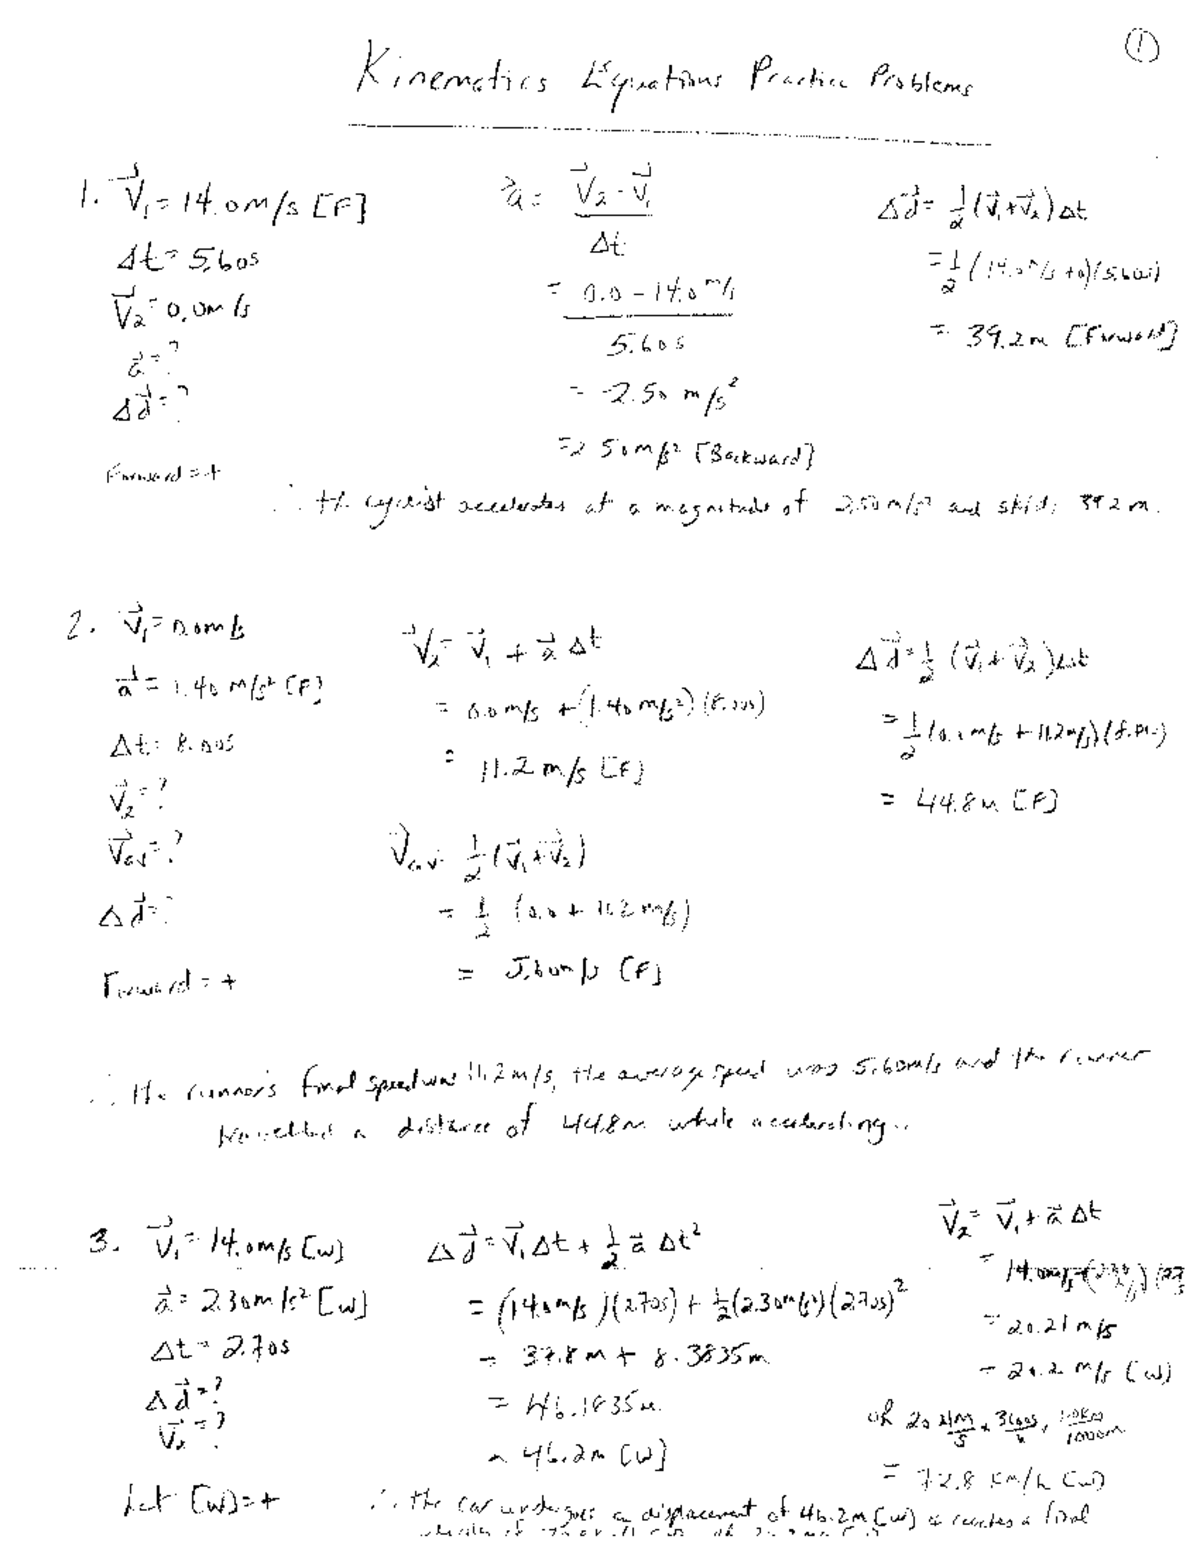 ①
Kinematics Equations Practice Problems
1. v⃗₁ = 14.0m/s [F]
Δt = 5.60s
v⃗₂ = 0.0m/s
a⃗ = ?
Δd⃗ = ?
Forward = +
a⃗ = (v⃗₂ - v⃗₁) / Δt
= (0.0 - 14.0 m/s) / 5.60s
= -2.50 m/s²
= 2.50m/s² [Backward]
Δd⃗ = ½(v⃗₁+v⃗₂)Δt
= ½(14.0m/s+0)(5.60s)
= 39.2m [Forward]
∴ the cyclist accelerates at a magnitude of 2.50m/s² and skids 39.2m.
2. v⃗₁ = 0.0m/s
a⃗ = 1.40 m/s² [F]
Δt = 8.00s
v⃗₂ = ?
v⃗av = ?
Δd⃗ = ?
Forward = +
v⃗₂ = v⃗₁ + a⃗Δt
= 0.0m/s + (1.40m/s²)(8.00s)
= 11.2m/s [F]
v⃗av = ½(v⃗₁+v⃗₂)
= ½ (0.0 + 11.2m/s)
= 5.60m/s [F]
Δd⃗ = ½(v⃗₁+v⃗₂)Δt
= ½(0.0m/s + 11.2m/s)(8.00s)
= 44.8m [F]
∴ the runner's final speed was 11.2m/s, the average speed was 5.60m/s and the runner
travelled a distance of 44.8m while accelerating.
3. v⃗₁ = 14.0m/s [W]
a⃗ = 2.30m/s² [W]
Δt = 2.70s
Δd⃗ = ?
v⃗₂ = ?
Let [W] = +
Δd⃗ = v⃗₁Δt + ½a⃗Δt²
= (14.0m/s)(2.70s) + ½(2.30m/s²)(2.70s)²
= 37.8m + 8.3835m
= 46.1835m
= 46.2m [W]
v⃗₂ = v⃗₁ + a⃗Δt
= 14.0m/s + (2.30
= 20.21m/s
= 20.2 m/s [W]
or 20.21 m/s × 3600s/h × 1.0km/1000m
= 72.8 km/h [W]
∴ the car undergoes a displacement of 46.2m [W] & reaches a final